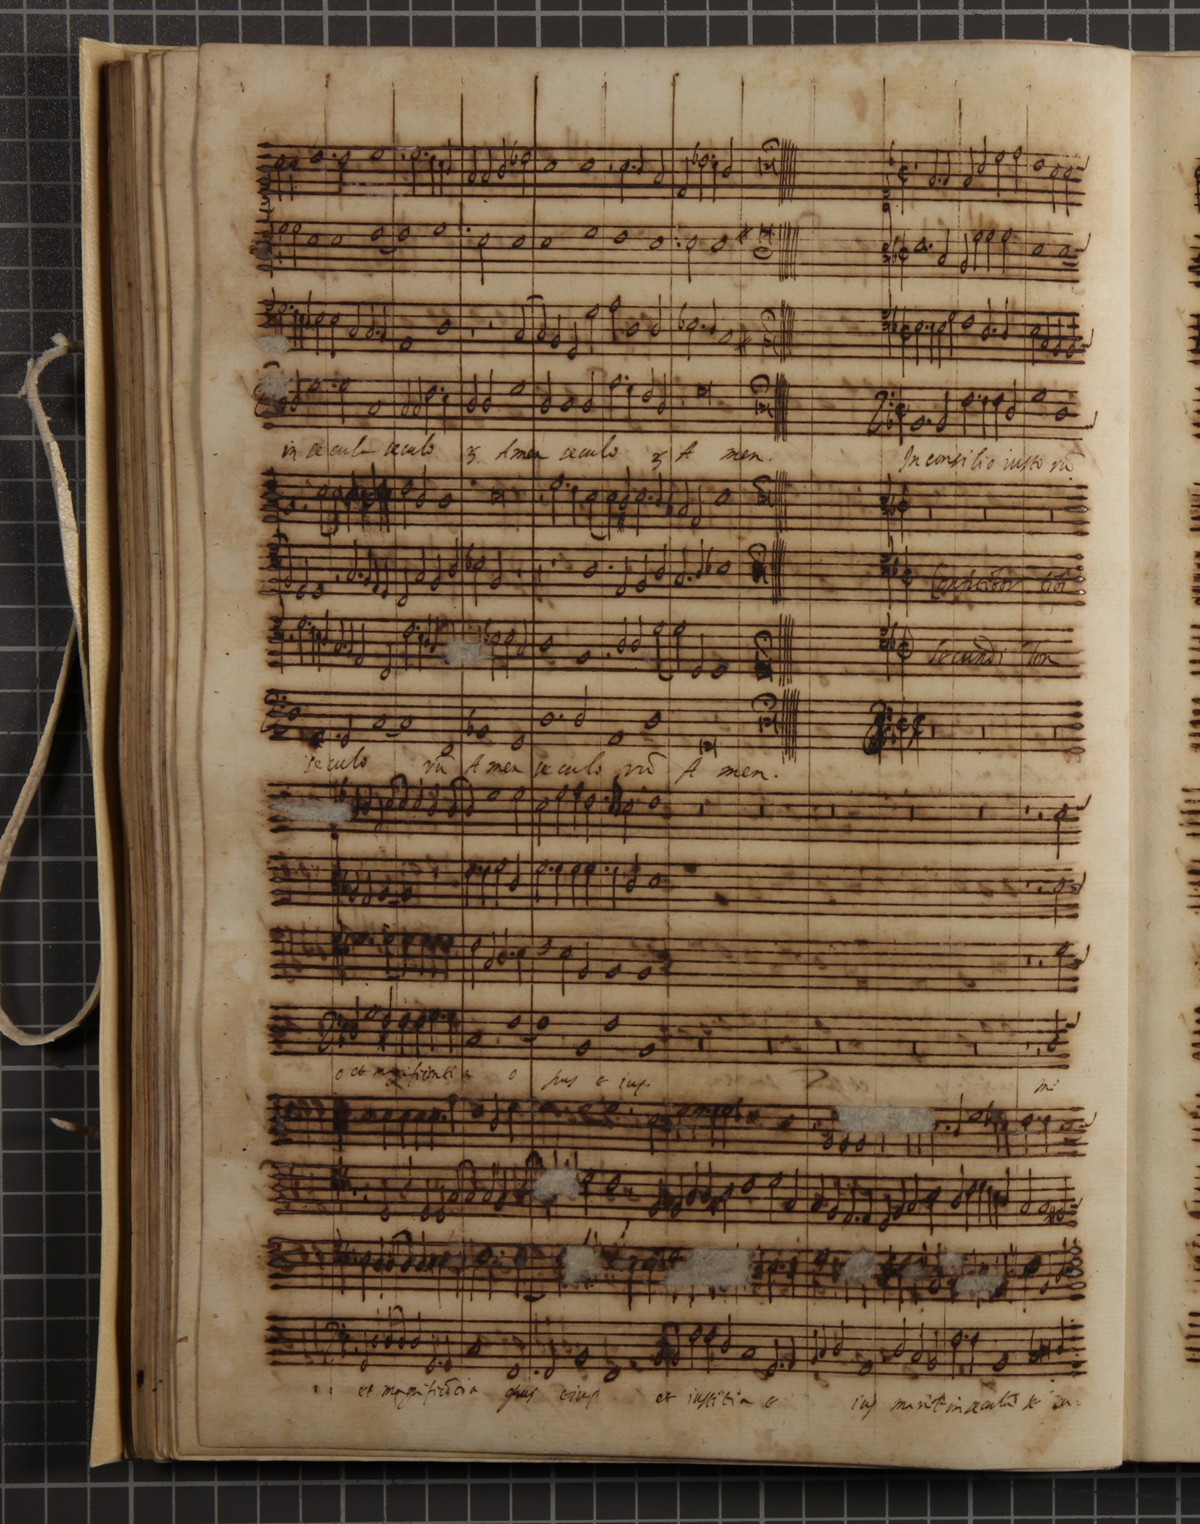 in secula seculo ꝝ Amen seculo ꝝ A men. In consilio iusto rū
Confitebor tibi
Secundi Ton
seculo rū Amen seculo rū A men.
o et magnificentia o pus e ius. m
et magnificēcia opus eius et iustitia e ius manēt in seculū se cu-